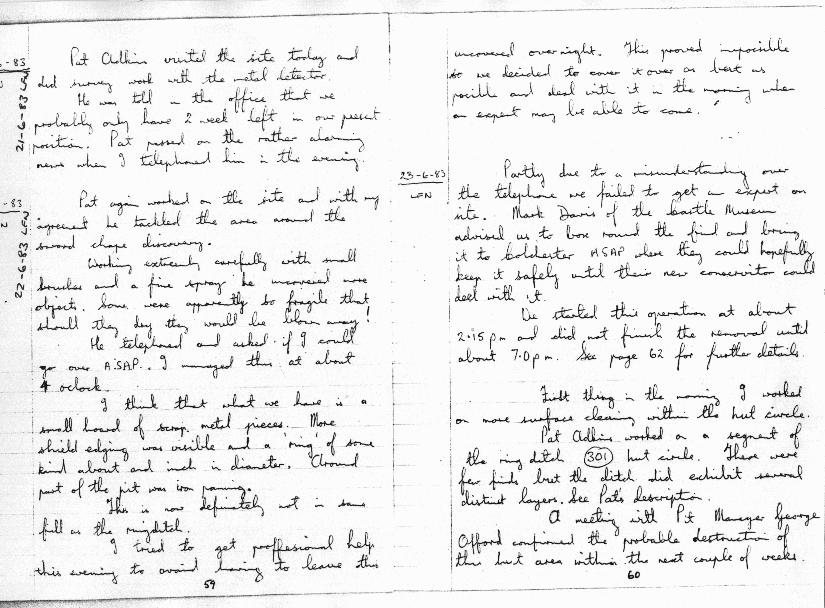 -83
21-6-83 LFN
Pat Adkins visited the site today and
did survey work with the metal detector.
He was told in the office that we
probably only have 2 week left in our present
position. Pat passed on the rather alarming
news when I telephoned him in the evening.
-83
22-6-83 LFN
Pat again worked on the site and with my
agreement he tackled the area around the
sword chape discovery.
Working extremely carefully with small
brushes and a fine spray he uncovered more
objects. Some were apparently so fragile that
should they dry they would be blown away!
He telephoned and asked if I could
go over ASAP. I managed this at about
4 oclock.
I think that what we have is a
small hoard of scrap metal pieces. More
shield edging was visible and a 'ring' of some
kind about and inch in diameter. Around
part of the pit was iron panning.
This is now definately not in same
fill as the ringditch.
I tried to get proffessional help
this evening to avoid having to leave this
59
uncovered overnight. This proved impossible
so we decided to cover it over as best as
possible and deal with it in the morning when
an expert may be able to come.
23-6-83
LFN
Partly due to a misunderstanding over
the telephone we failed to get an expert on
site. Mark Davis of the Castle Museum
advised us to box round the find and bring
it to Colchester ASAP where they could hopefully
keep it safely until their new conservator could
deal with it.
We started this operation at about
2.15pm and did not finish the removal until
about 7.0pm. See page 62 for further details.
First thing in the morning I worked
on more surface cleaning within the hut circle.
Pat Adkins worked on a segment of
the ring ditch 301 hut circle. There were
few finds but the ditch did exhibit several
distinct layers. See Pat's description.
A meeting with Pit Manager George
Offord confirmed the probable destruction of
this hut area within the next couple of weeks.
60